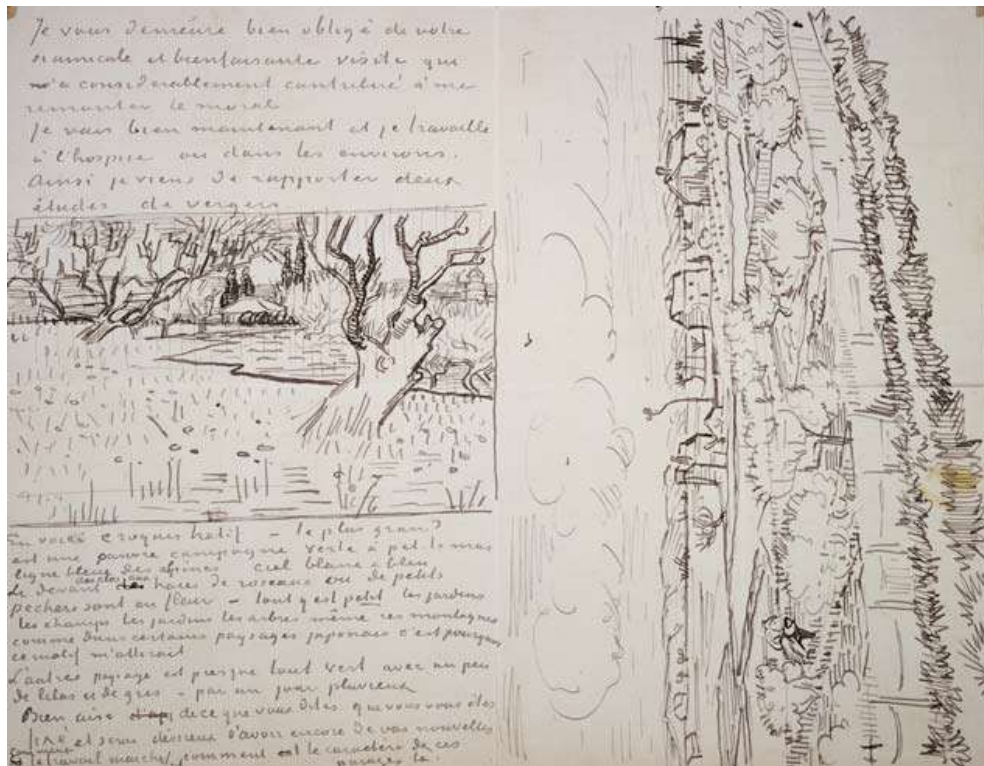 Je vous demeure bien obligé de votre
si amicale et bienfaisante visite qui
m'a considérablement contribué à me
remonter le moral
Je vais bien maintenant et je travaille
à l'hospice ou dans les environs.
Ainsi je viens de rapporter deux
études de vergers
En voici croquis hatif – le plus grand
est une pauvre campagne verte à petits mas
ligne bleue des alpines ciel blanc & bleu
Le devant des clos aux haies de roseaux ou de petits
pechers sont en fleur – tout y est petit les jardins
les champs les jardins les arbres même ces montagnes
comme dans certains paysages japonais c'est pourquoi
ce motif m'attirait
L'autre paysage est presque tout vert avec un peu
de lilas et de gris – par un jour pluvieux
Bien aise de ce que vous dites que vous vous êtes
fixé et serai désireux d'avoir encore de vos nouvelles
comment le travail marche, comment est le caractère de ces
parages là.